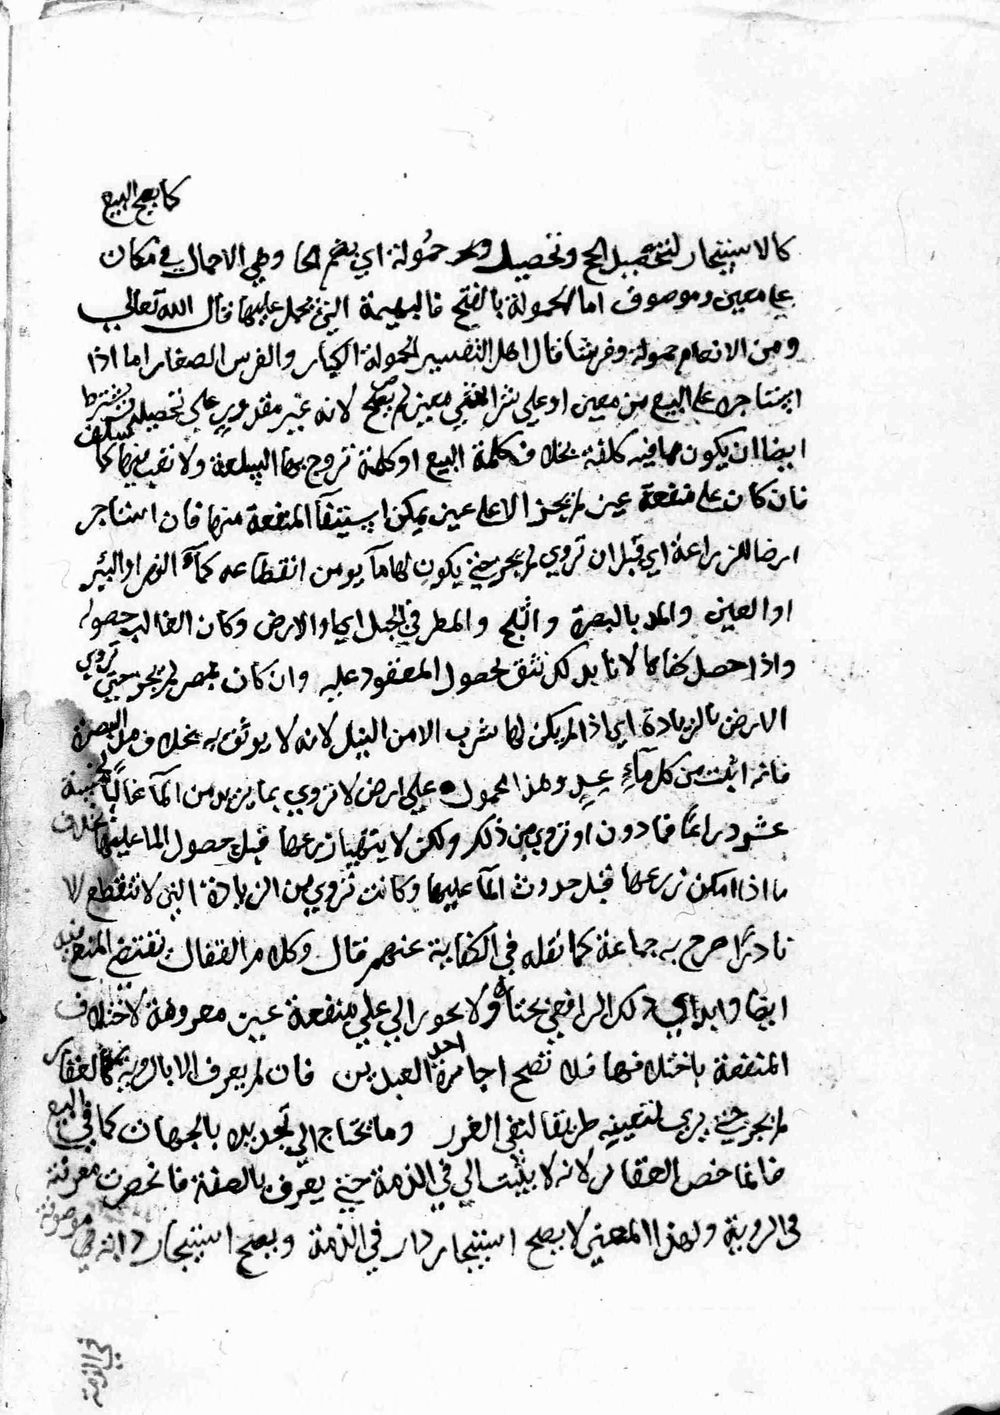 كما يصح البيع
كالاستيجار لتحصيل الحج وتحصيل حمولة اي بضم الحا وهي الاحمال في مكان
معين وموصوف اما الحمولة بالفتح فالبهيمة التي يحمل عليها قال الله تعالي
ومن الانعام حمولة وفرشا قال اهل التفسير الحمولة الكبار والفرس الصغار اما اذا
استاجره علي البيع من معين او علي شرا شي معين لم يصح لانه غير مقدور علي تحصيله ويشترط
ايضا ان يكون مما فيه كلفة بخلاف كلمة البيع او كلمة تروج بها السلعة ولا تعب فيها
فان كان علي منفعة عين لم يجز الا علي عين يمكن استيفآ المنفعة منها فان استاجر
ارضا للزراعة اي قبل ان تروي لم يجز حتي يكون لها مآ يومن انقطاعه كمآ النهر او البير
او العين والمد بالبصرة والثلج والمطر في الجبل اي والارض وكان الغالب حصوله
واذا حصل كفاها لانا بذلك نثق بحصول المعقود عليه وان كان بمصر لم يجز حتي تروي
الارض بالزيادة اي اذا لم يكن لها شرب الا من النيل لانه لا يوثق به بخلاف مد البصرة
فانه اثبت من كل مآء عد وهذا محمول علي ارض لا تروي بما يزيد من المآ غالبًا
عشر ذراعًا فما دون او تروي من ذلك ولكن لا يتهيا زرعها قبل حصول الما عليها بخلاف
ما اذا امكن زرعها قبل حدوث المآ عليها وكانت تروي من الزيادة التي لا تنقطع الا
نادرًا صرح به جماعة كما نقله في الكفاية عنهم قال وكلام القفال يقتضي المنع فيه
ايضا وابداي ذلك الرافعي بحثا ولا يجوز الي علي منفعة عين معروفة لاختلاف
المنفعة باختلافها فلا تصح اجارة احد العبدين فان لم يعرف الا بالروية كالعقار
لم يجز حتي يري لتعينه طريقا لنفي الغرر وما يحتاج الي تحديده بالجهات كما في البيع
وانما خص العقار لانه لا يثبت الي في الذمة حتي يعرف بالصفة فانحصرت معرفته
في الروية ولهذا المعني لا يصح استيجار دار في الذمة ويصح استيجار دابة موصوفة
في الذمة